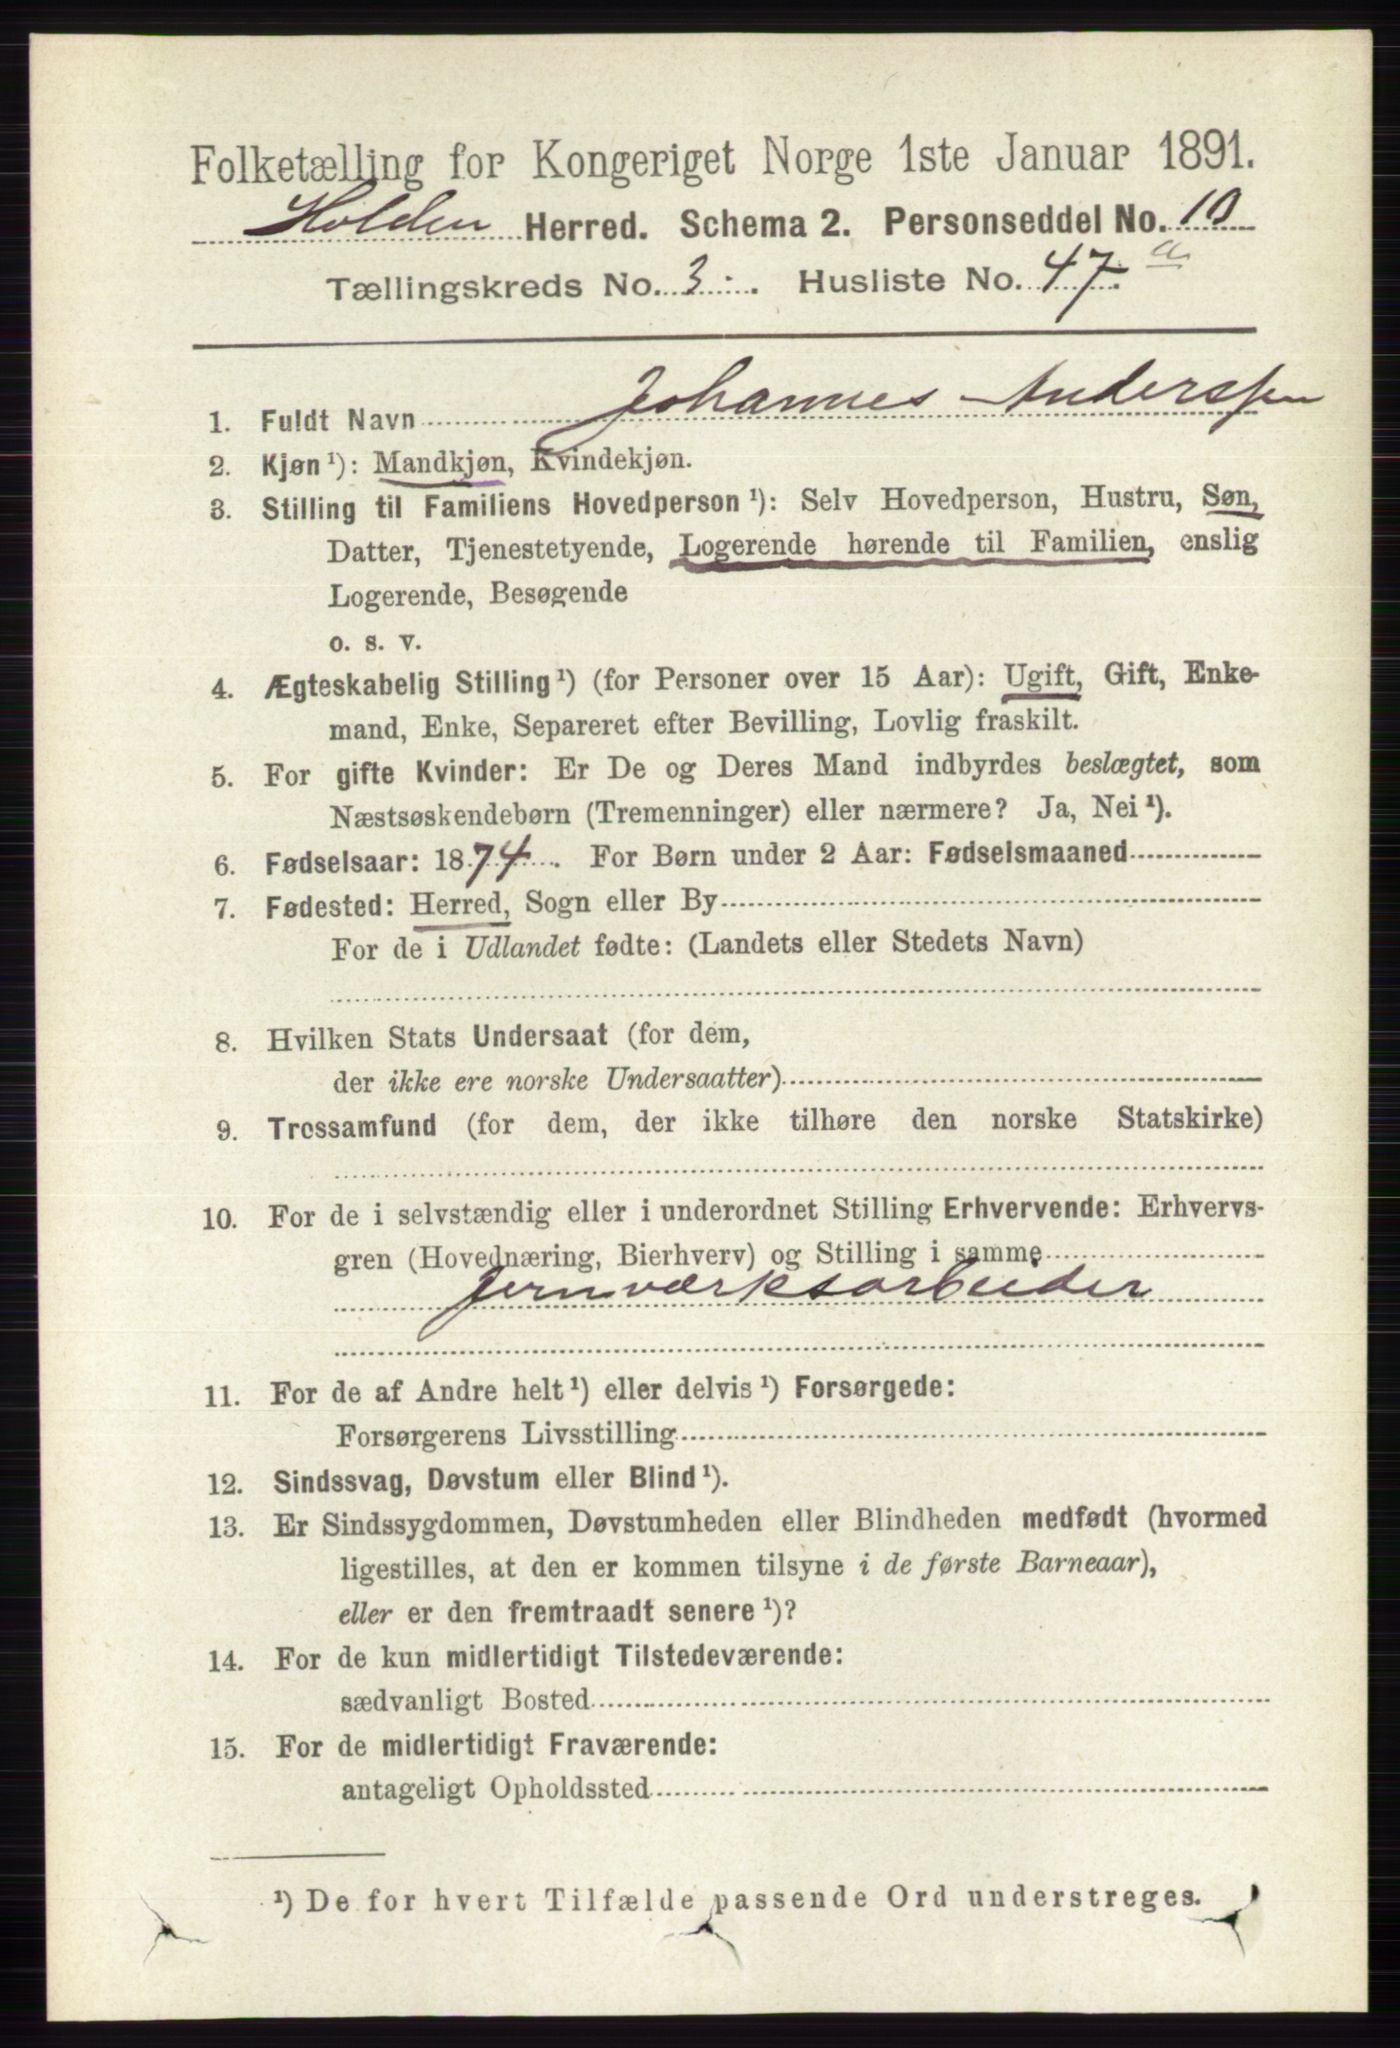 Folketælling for Kongeriget Norge 1ste Januar 1891.
Holden Herred. Schema 2. Personseddel No. 10
Tællingskreds No. 3. Husliste No. 47. a
1. Fuldt Navn Johannes Anderssen
2. Kjøn¹): Mandkjøn, Kvindekjøn.
3. Stilling til Familiens Hovedperson¹): Selv Hovedperson, Hustru, Søn,
Datter, Tjenestetyende, Logerende hørende til Familien, enslig
Logerende, Besøgende
o. s. v.
4. Ægteskabelig Stilling¹) (for Personer over 15 Aar): Ugift, Gift, Enke-
mand, Enke, Separeret efter Bevilling, Lovlig fraskilt.
5. For gifte Kvinder: Er De og Deres Mand indbyrdes beslægtet, som
Næstsøskendebørn (Tremenninger) eller nærmere? Ja, Nei¹).
6. Fødselsaar: 1874. For Børn under 2 Aar: Fødselsmaaned
7. Fødested: Herred, Sogn eller By
For de i Udlandet fødte: (Landets eller Stedets Navn)
8. Hvilken Stats Undersaat (for dem,
der ikke ere norske Undersaatter)
9. Trossamfund (for dem, der ikke tilhøre den norske Statskirke)
10. For de i selvstændig eller i underordnet Stilling Erhvervende: Erhvervs-
gren (Hovednæring, Bierhverv) og Stilling i samme
Jernværksarbeider
11. For de af Andre helt¹) eller delvis¹) Forsørgede:
Forsørgerens Livsstilling
12. Sindssvag, Døvstum eller Blind¹).
13. Er Sindssygdommen, Døvstumheden eller Blindheden medfødt (hvormed
ligestilles, at den er kommen tilsyne i de første Barneaar),
eller er den fremtraadt senere¹)?
14. For de kun midlertidigt Tilstedeværende:
sædvanligt Bosted
15. For de midlertidigt Fraværende:
antageligt Opholdssted
¹) De for hvert Tilfælde passende Ord understreges.